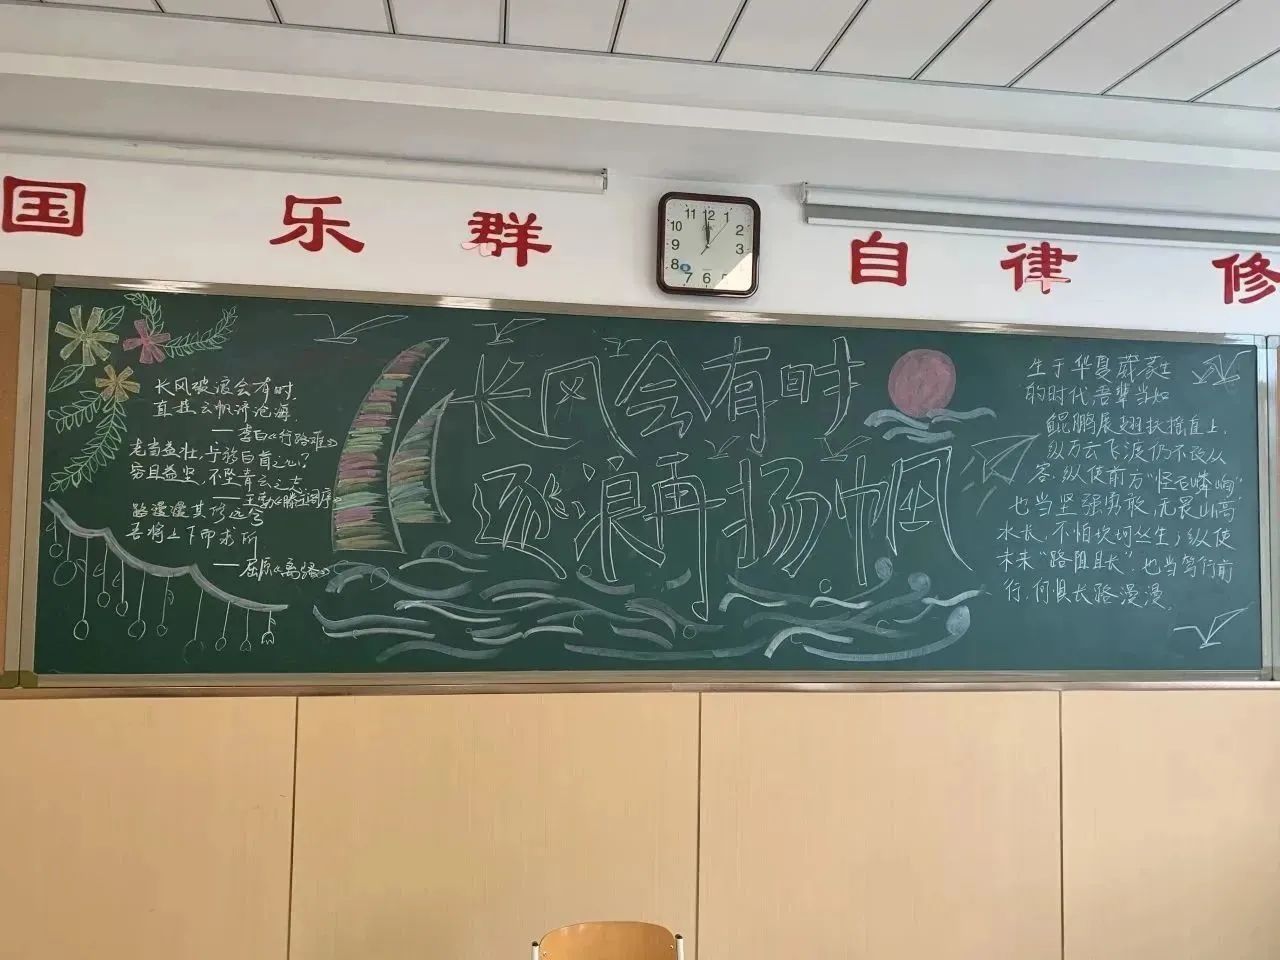 国 乐 群 自 律 修
11 12 1
10 2
9 3
8
7 6 5
长风破浪会有时,
直挂云帆济沧海
——李白《行路难》
老当益壮,宁移白首之心?
穷且益坚,不坠青云之志
——王勃《滕王阁序》
路漫漫其修远兮
吾将上下而求所
——屈原《离骚》
长风会有时
逐浪再扬帆
生于华夏
的时代,吾辈当如
鲲鹏展翅扶摇直上,
纵万云飞渡仍不改从
容,纵使前方“怪石嶙峋”
也当坚强勇敢,无畏山高
水长,不怕坎坷丛生;纵使
未来“路阻且长”,也当笃行前
行,何惧长路漫漫.